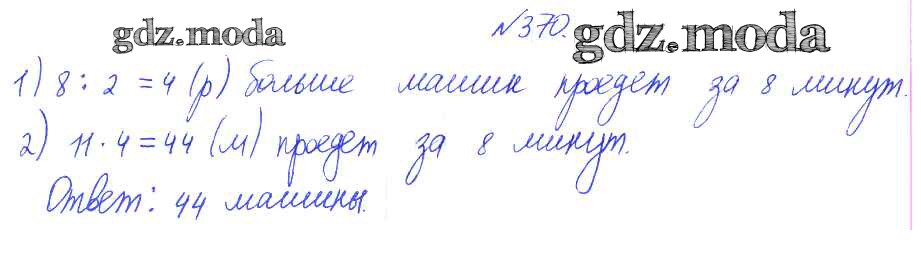 gdz.moda №370. gdz.moda
1) 8 : 2 = 4 (р) больше машин проедет за 8 минут.
2) 11 · 4 = 44 (м) проедет за 8 минут.
Ответ: 44 машины.